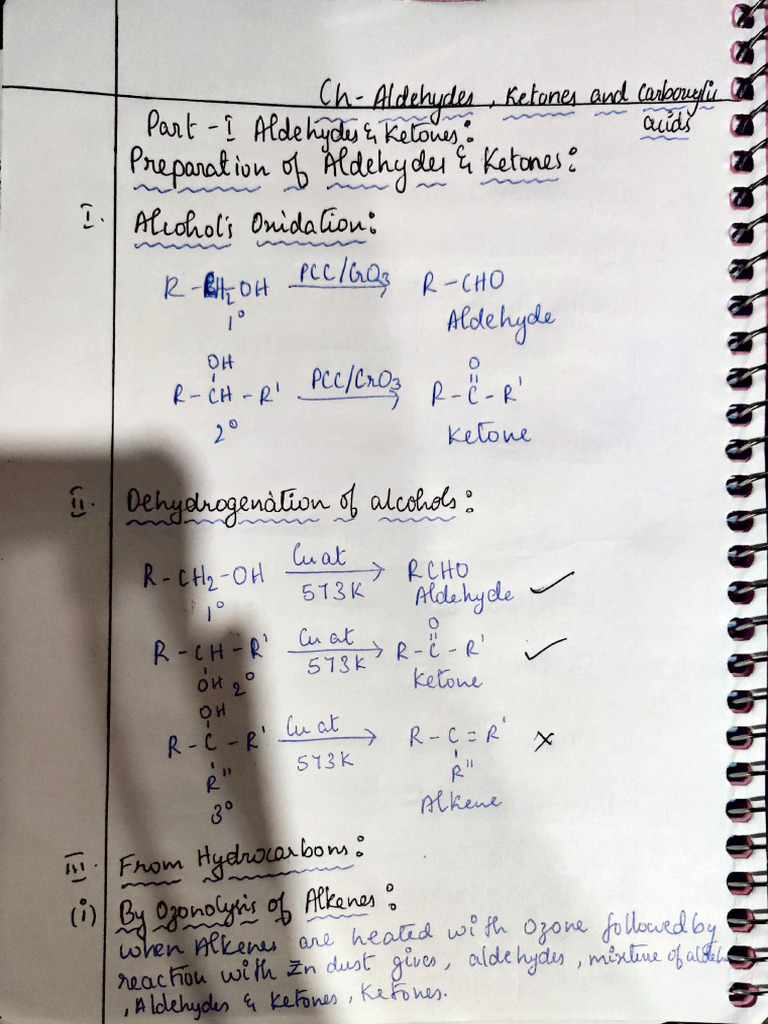 Ch- Aldehydes, Ketones and Carboxylic acids
Part -I Aldehydes & Ketones:
Preparation of Aldehydes & Ketones:
I. Alcohol's Oxidation:
R - CH2 - OH PCC/CrO3 R - CHO
1° Aldehyde
OH O
R - CH - R' PCC/CrO3 R - C - R'
2° Ketone
II. Dehydrogenation of alcohols:
R - CH2 - OH Cu at 573K RCHO ✓
1° Aldehyde
O
R - CH - R' Cu at 573K R - C - R' ✓
OH 2° Ketone
OH
R - C - R' Cu at 573K R - C = R' ×
R" R"
3° Alkene
III. From Hydrocarbons:
(i) By Ozonolysis of Alkenes:
when Alkenes are heated with Ozone followed by
reaction with Zn dust gives, aldehydes, mixture of
, Aldehydes & Ketones, Ketones.